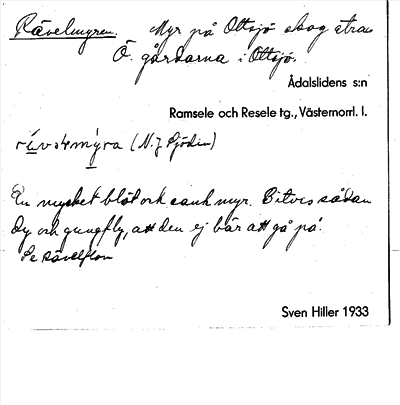 Rävelmyren. Myr på Ottsjö skog strax
Ö. gårdarna i Ottsjö.
Ådalslidens s:n
Ramsele och Resele tg., Västernorrl. l.
(N. J. Sjödin)
En mycket blöt och sank myr. Bitvis sådan
dy och gungfly, att den ej bär att gå på.
Se Rävelflon
Sven Hiller 1933